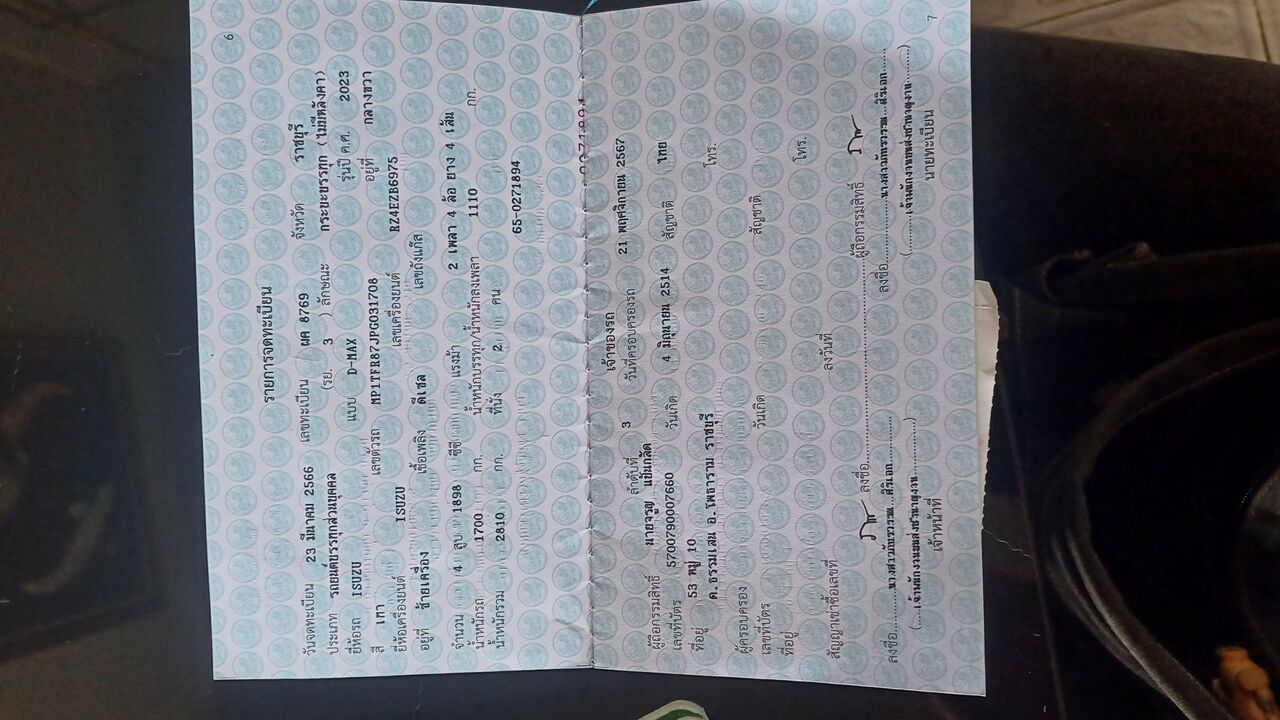 6
รายการจดทะเบียน
วันจดทะเบียน 23 มีนาคม 2566 เลขทะเบียน ผค 8769 จังหวัด ราชบุรี
ประเภท รถยนต์บรรทุกส่วนบุคคล (รย. 3 ) ลักษณะ กระบะบรรทุก (ไม่มีหลังคา)
ยี่ห้อรถ ISUZU แบบ D-MAX รุ่นปี ค.ศ. 2023
สี เทา เลขตัวรถ MP1TFR87JPG031708 อยู่ที่ กลางขวา
ยี่ห้อเครื่องยนต์ ISUZU เลขเครื่องยนต์ RZ4EZB6975
อยู่ที่ ซ้ายเครื่อง เชื้อเพลิง ดีเซล เลขถังแก๊ส
จำนวน 4 สูบ 1898 ซีซี แรงม้า 2 เพลา 4 ล้อ ยาง 4 เส้น
น้ำหนักรถ 1700 กก. น้ำหนักบรรทุก/น้ำหนักลงเพลา 1110 กก.
น้ำหนักรวม 2810 กก. ที่นั่ง 2 คน
65-0271894
เจ้าของรถ
ลำดับที่ 3 วันที่ครอบครองรถ 21 พฤศจิกายน 2567
ผู้ถือกรรมสิทธิ์ นายจรูญ แย้มกลัด
เลขที่บัตร 5700790007660 วันเกิด 4 มิถุนายน 2514 สัญชาติ ไทย
ที่อยู่ 53 หมู่ 10
ต.ธรรมเสน อ.โพธาราม ราชบุรี โทร.
ผู้ครอบครอง
เลขที่บัตร วันเกิด สัญชาติ
ที่อยู่ โทร.
สัญญาเช่าซื้อเลขที่ ลงวันที่
ลงชื่อ ผู้ถือกรรมสิทธิ์
ลงชื่อ ลงชื่อ
(เจ้าพนักงานขนส่งชำนาญงาน) (เจ้าพนักงานขนส่งชำนาญงาน)
เจ้าหน้าที่ นายทะเบียน
7